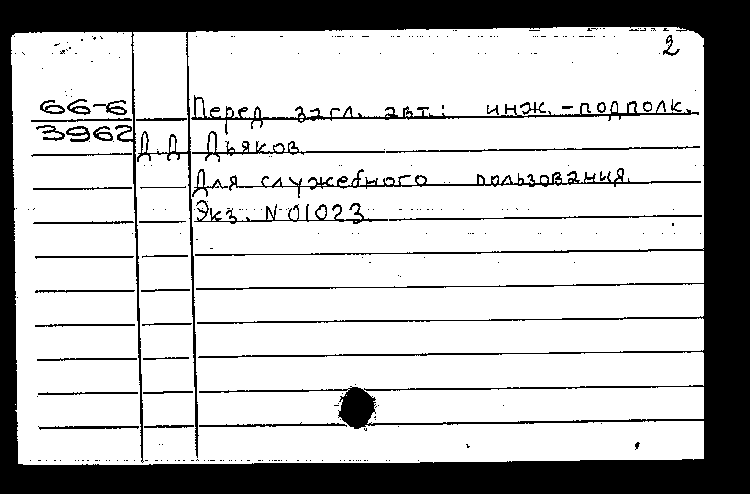 2
66-6 Перед загл. авт.: инж.-подполк.
3962 Д.Д Дьяков
Для служебного пользования
Экз. N 01023